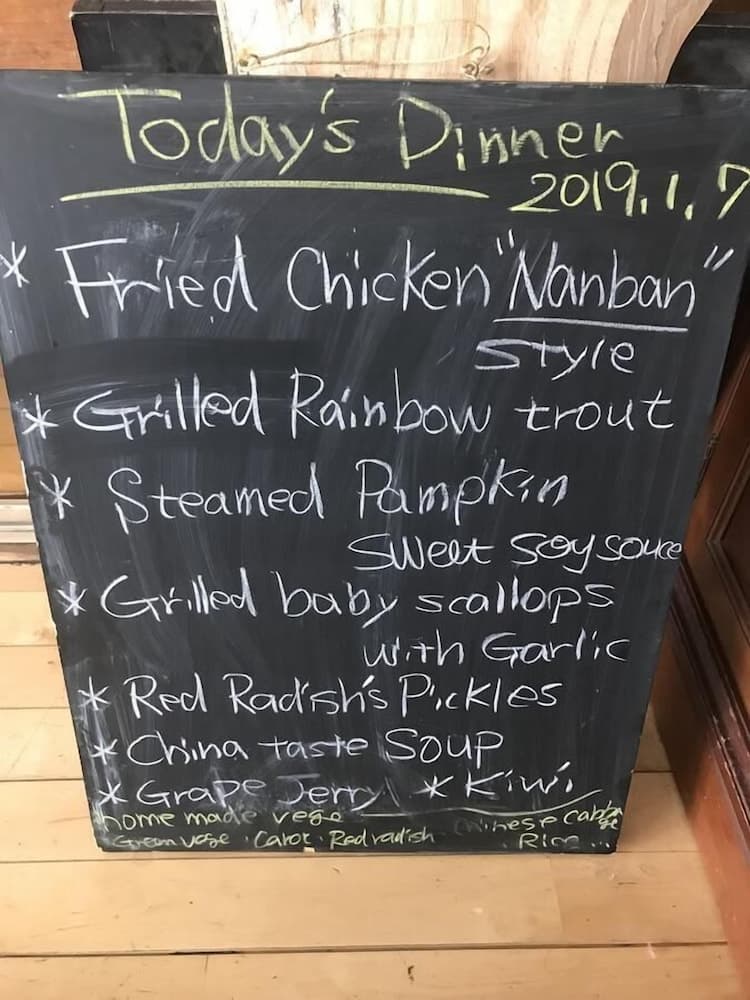 Today's Dinner
2019.1.7
* Fried Chicken "Nanban"
style
* Grilled Rainbow trout
* Steamed Pampkin
sweet soy souce
* Grilled baby scallops
with Garlic
* Red Radish's Pickles
* China taste Soup
* Grape Jerry * Kiwi
home made vege Chinese
Green vege . Carot . Red radish . Rice ...